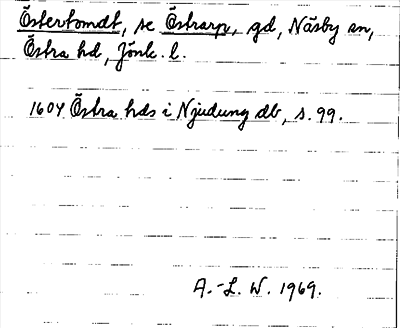 Östertomdt, se Östrarp, gd, Näsby sn,
Östra hd, Jönk. l.
1604 Östra hds i Njudung db, s. 99.
A.-L. W. 1969.